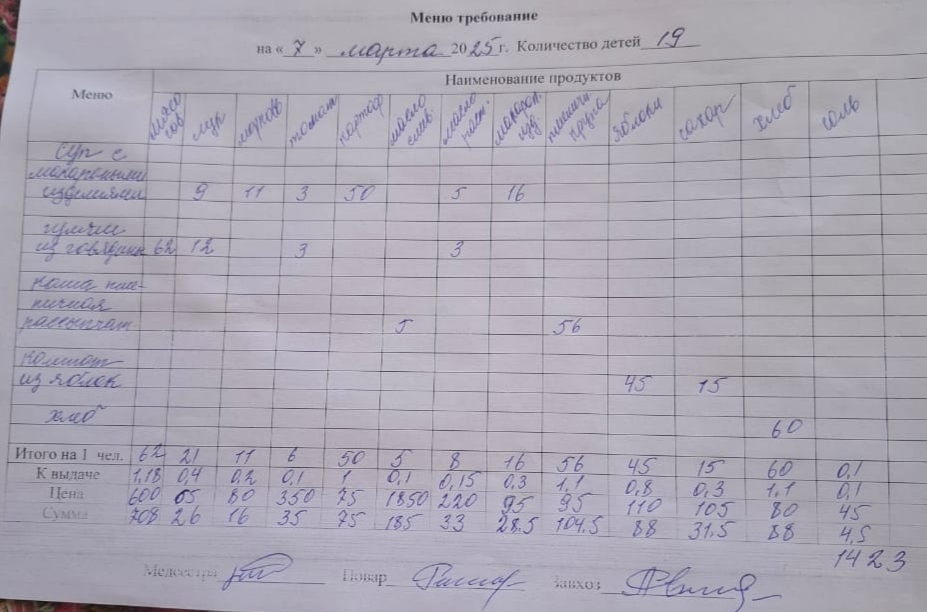 Меню требование
на « 7 » марта 2025г. Количество детей 19
Меню Наименование продуктов
мясо гов лук морковь томат картоф масло слив масло раст. макарон. изд пшенич. крупа яблоки сахар хлеб соль
Суп с
макаронными
изделиями 9 11 3 50 5 16
гуляш
из говядины 62 12 3 3
каша пше-
ничная
рассыпчат 5 56
компот
из яблок 45 15
хлеб 60
Итого на 1 чел. 62 21 11 6 50 5 8 16 56 45 15 60 0,1
К выдаче 1,18 0,4 0,2 0,1 1 0,1 0,15 0,3 1,1 0,8 0,3 1,1 0,1
Цена 600 65 80 350 75 1850 220 95 95 110 105 80 45
Сумма 708 26 16 35 75 185 33 28.5 104.5 88 31.5 88 4,5
1423
Медсестра Повар Завхоз